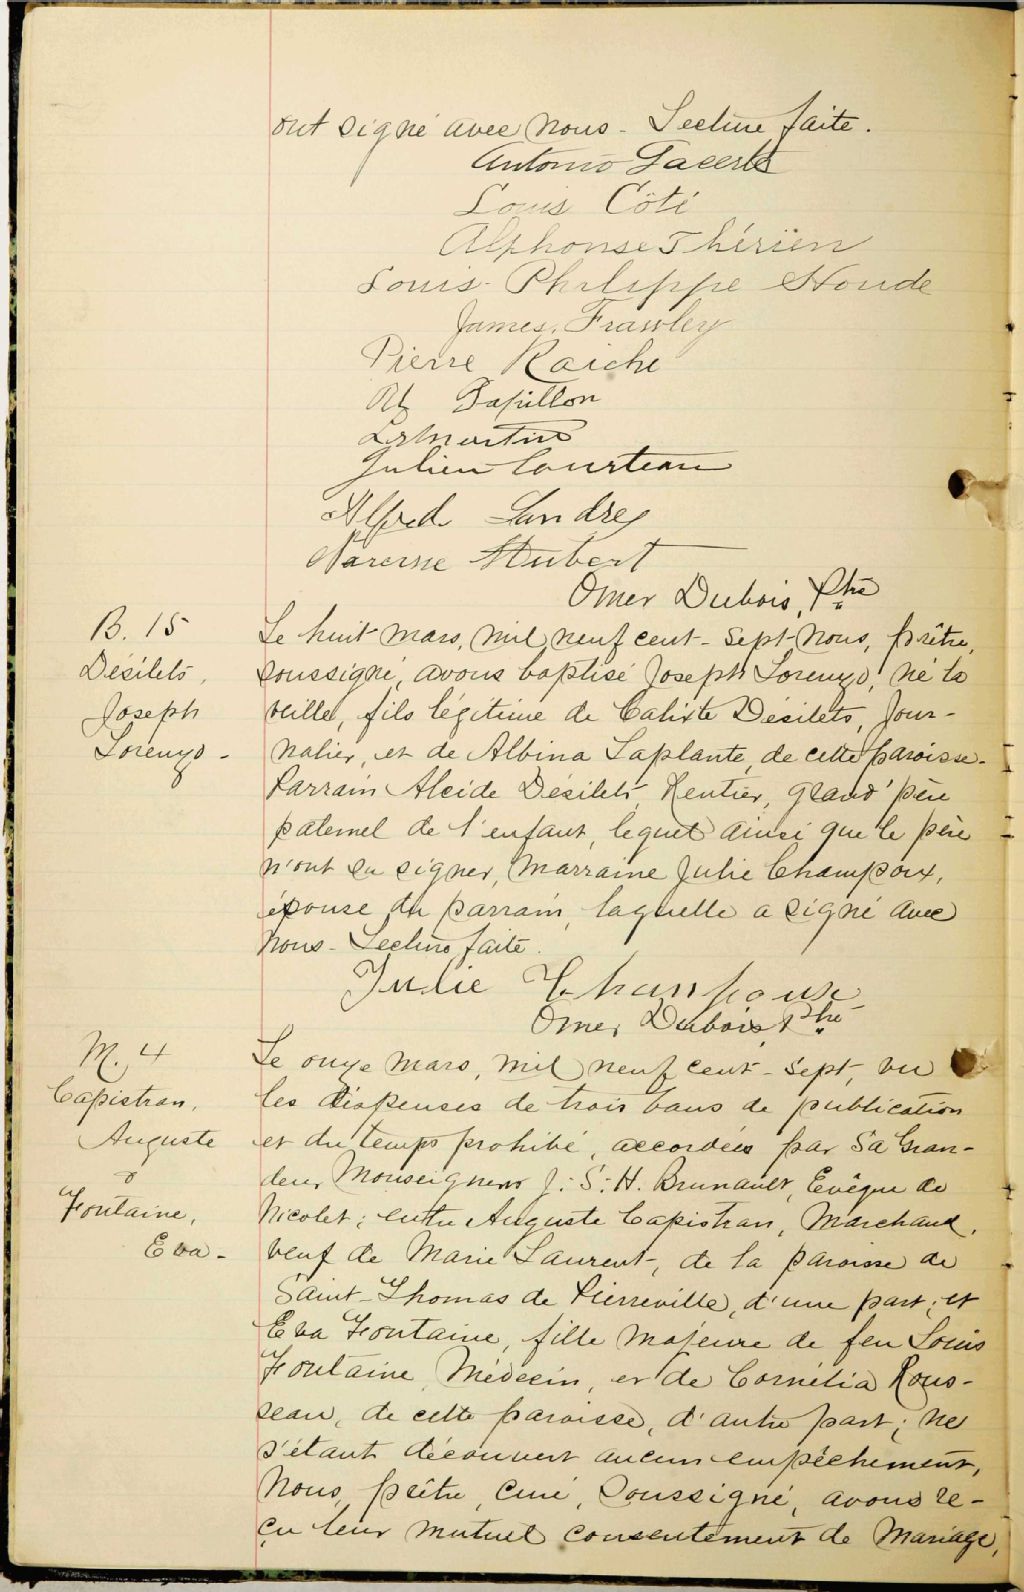 ont signé avec nous - Lecture faite.
Antonio Lacerte
Louis Côté
Alphonse Thérïen
Louis-Philippe Houde
James Frawley
Pierre Raiche
Papillon
Martin
Julien Courteau
Alfred Landry
Narcisse Hubert
Omer Dubois, Ptre
B. 15
Désilets,
Joseph
Lorenzo -
Le huit mars, mil neuf cent-sept-Nous, prêtre,
soussigné, avons baptisé Joseph Lorenzo, né la
veille, fils légitime de Calixte Désilets, Jour-
nalier, et de Albina Laplante, de cette paroisse -
Parrain Alcide Désilets, Rentier, grand'père
paternel de l'enfant, lequel ainsi que le père
n'ont su signer, Marraine Julie Champoux,
épouse du parrain, laquelle a signé avec
nous - Lecture faite.
Julie Champoux
Omer Dubois, Ptre
M. 4
Capistran,
Auguste
&
Fontaine,
Eva -
Le onze mars, mil neuf cent-sept, vu
les dispenses de trois bans de publication
et du temps prohibé, accordées par Sa Gran-
deur Monseigneur J: S: H. Brunault, Evêque de
Nicolet; entre Auguste Capistran, Marchand,
veuf de Marie Laurent, de la paroisse de
Saint-Thomas de Pierreville, d'une part; et
Eva Fontaine, fille majeure de feu Louis
Fontaine, Médecin, et de Cornélia Rous-
seau, de cette paroisse, d'autre part; ne
s'étant découvert aucun empêchement,
Nous, prêtre, curé, soussigné, avons re-
çu leur mutuel consentement de Mariage,